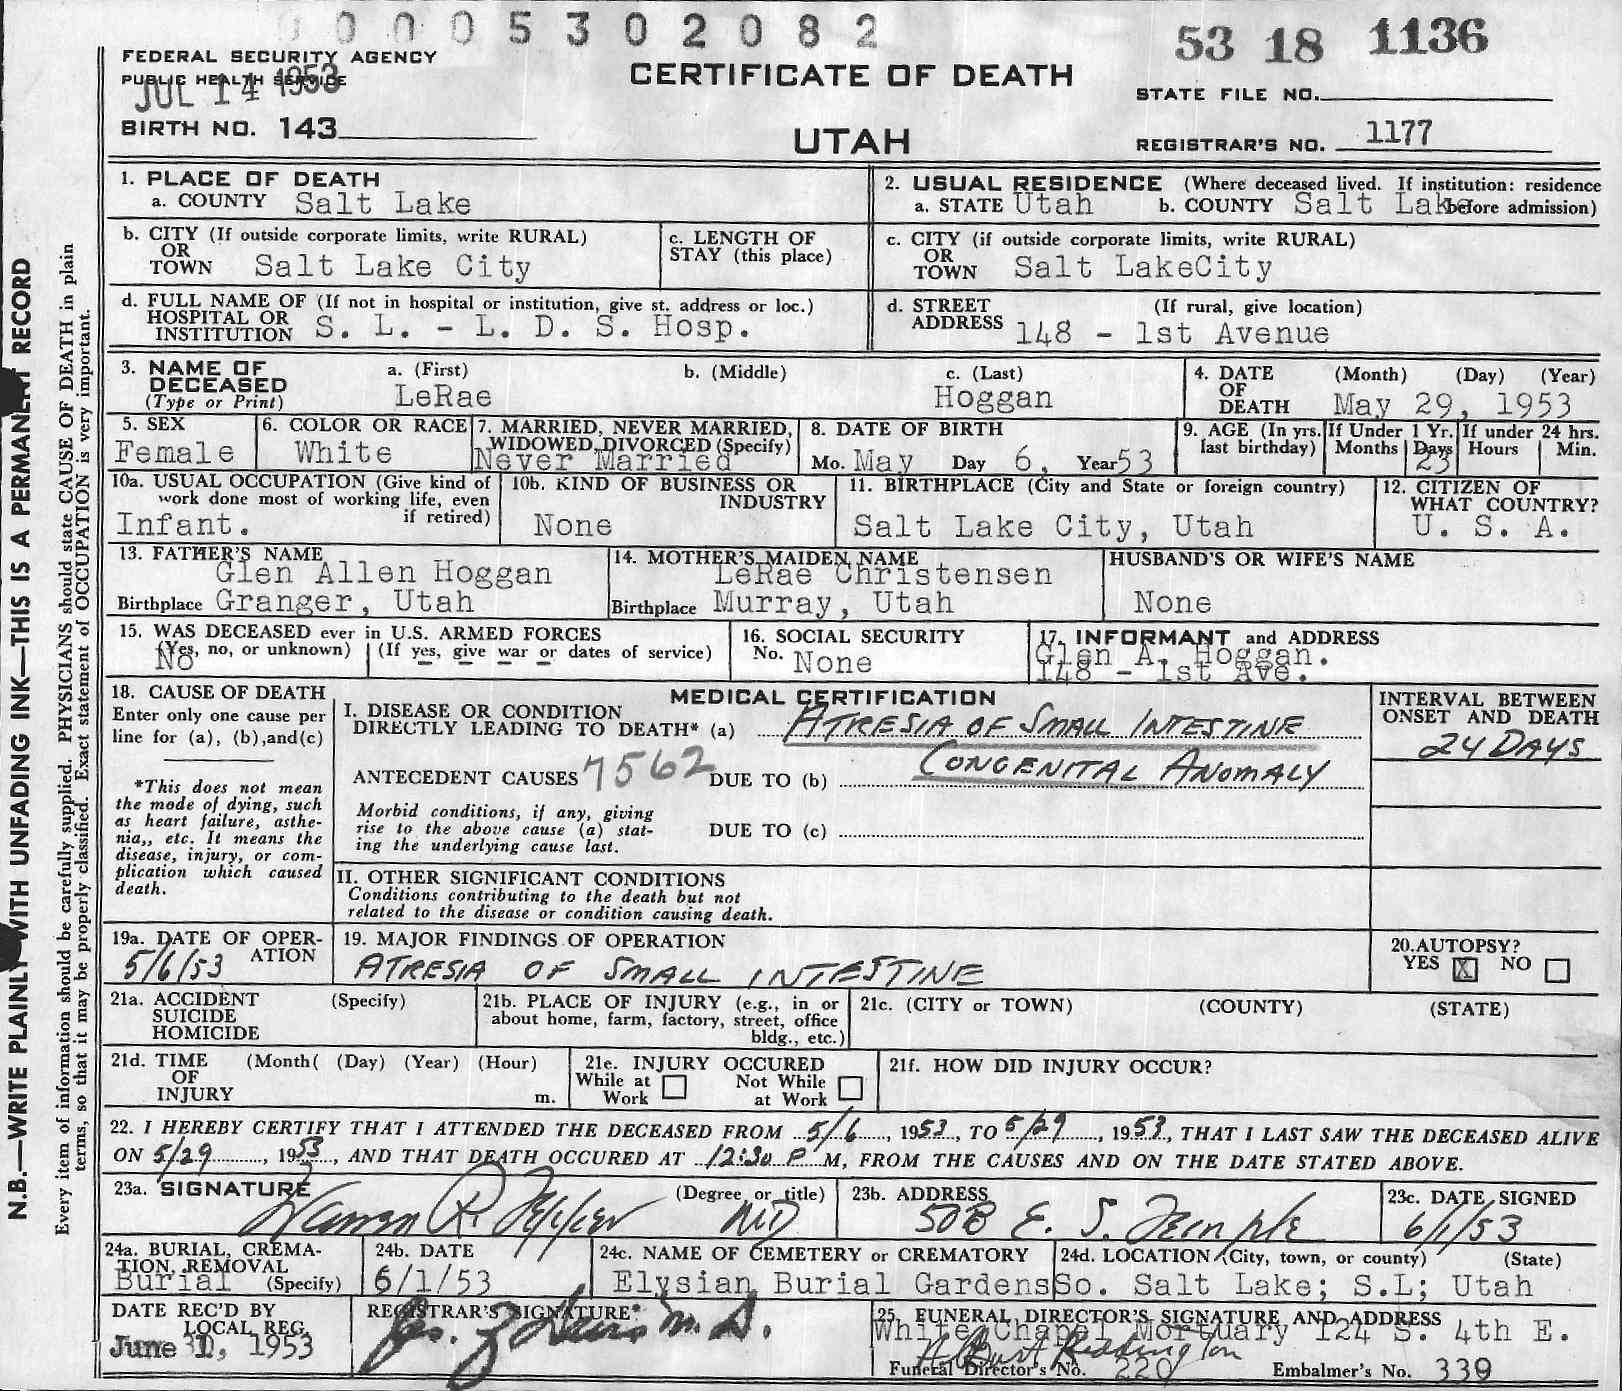 0 0 0 0 5 3 0 2 0 8 2
53 18 1136
FEDERAL SECURITY AGENCY
PUBLIC HEALTH SERVICE
JUL 14 1953
CERTIFICATE OF DEATH
STATE FILE NO.
BIRTH NO. 143
UTAH
REGISTRAR'S NO. 1177
N.B.—WRITE PLAINLY WITH UNFADING INK—THIS IS A PERMANENT RECORD
Every item of information should be carefully supplied. PHYSICIANS should state CAUSE OF DEATH in plain
terms, so that it may be properly classified. Exact statement of OCCUPATION is very important.
1. PLACE OF DEATH
a. COUNTY Salt Lake
2. USUAL RESIDENCE (Where deceased lived. If institution: residence
a. STATE Utah b. COUNTY Salt Lake before admission)
b. CITY (If outside corporate limits, write RURAL)
OR
TOWN Salt Lake City
c. LENGTH OF
STAY (this place)
c. CITY (if outside corporate limits, write RURAL)
OR
TOWN Salt LakeCity
d. FULL NAME OF (If not in hospital or institution, give st. address or loc.)
HOSPITAL OR
INSTITUTION S. L. - L. D. S. Hosp.
d. STREET (If rural, give location)
ADDRESS 148 - 1st Avenue
3. NAME OF a. (First) b. (Middle) c. (Last)
DECEASED
(Type or Print) LeRae Hoggan
4. DATE (Month) (Day) (Year)
OF
DEATH May 29, 1953
5. SEX
Female
6. COLOR OR RACE
White
7. MARRIED, NEVER MARRIED,
WIDOWED, DIVORCED (Specify)
Never Married
8. DATE OF BIRTH
Mo. May Day 6, Year 53
9. AGE (In yrs.
last birthday)
If Under 1 Yr.
Months Days
23
If under 24 hrs.
Hours Min.
10a. USUAL OCCUPATION (Give kind of
work done most of working life, even
if retired)
Infant.
10b. KIND OF BUSINESS OR
INDUSTRY
None
11. BIRTHPLACE (City and State or foreign country)
Salt Lake City, Utah
12. CITIZEN OF
WHAT COUNTRY?
U. S. A.
13. FATHER'S NAME
Glen Allen Hoggan
Birthplace Granger, Utah
14. MOTHER'S MAIDEN NAME
LeRae Christensen
Birthplace Murray, Utah
HUSBAND'S OR WIFE'S NAME
None
15. WAS DECEASED ever in U.S. ARMED FORCES
(Yes, no, or unknown) (If yes, give war or dates of service)
No - - -
16. SOCIAL SECURITY
No. None
17. INFORMANT and ADDRESS
Glen A. Hoggan.
148 - 1st Ave.
18. CAUSE OF DEATH
Enter only one cause per
line for (a), (b),and(c)
*This does not mean
the mode of dying, such
as heart failure, asthe-
nia,, etc. It means the
disease, injury, or com-
plication which caused
death.
MEDICAL CERTIFICATION
I. DISEASE OR CONDITION
DIRECTLY LEADING TO DEATH* (a) ATRESIA OF SMALL INTESTINE
ANTECEDENT CAUSES 7562 DUE TO (b) CONGENITAL ANOMALY
Morbid conditions, if any, giving
rise to the above cause (a) stat-
ing the underlying cause last.
DUE TO (c)
INTERVAL BETWEEN
ONSET AND DEATH
24 DAYS
II. OTHER SIGNIFICANT CONDITIONS
Conditions contributing to the death but not
related to the disease or condition causing death.
19a. DATE OF OPER-
ATION
5/6/53
19. MAJOR FINDINGS OF OPERATION
ATRESIA OF SMALL INTESTINE
20.AUTOPSY?
YES X NO
21a. ACCIDENT (Specify)
SUICIDE
HOMICIDE
21b. PLACE OF INJURY (e.g., in or
about home, farm, factory, street, office
bldg., etc.)
21c. (CITY or TOWN) (COUNTY) (STATE)
21d. TIME (Month( (Day) (Year) (Hour)
OF
INJURY m.
21e. INJURY OCCURED
While at Not While
Work at Work
21f. HOW DID INJURY OCCUR?
22. I HEREBY CERTIFY THAT I ATTENDED THE DECEASED FROM 5/6, 1953, TO 5/29, 1953, THAT I LAST SAW THE DECEASED ALIVE
ON 5/29, 1953, AND THAT DEATH OCCURED AT 12:30 P M, FROM THE CAUSES AND ON THE DATE STATED ABOVE.
23a. SIGNATURE (Degree, or title)
MD
23b. ADDRESS
508 E. S. Temple
23c. DATE SIGNED
6/1/53
24a. BURIAL, CREMA-
TION, REMOVAL
Burial (Specify)
24b. DATE
6/1/53
24c. NAME OF CEMETERY or CREMATORY
Elysian Burial Gardens
24d. LOCATION (City, town, or county) (State)
So. Salt Lake; S.L; Utah
DATE REC'D BY
LOCAL REG.
June 1, 1953
REGISTRAR'S SIGNATURE
M.D.
25. FUNERAL DIRECTOR'S SIGNATURE AND ADDRESS
White Chapel Mortuary 124 S. 4th E.
Funeral Director's No. 220 Embalmer's No. 339